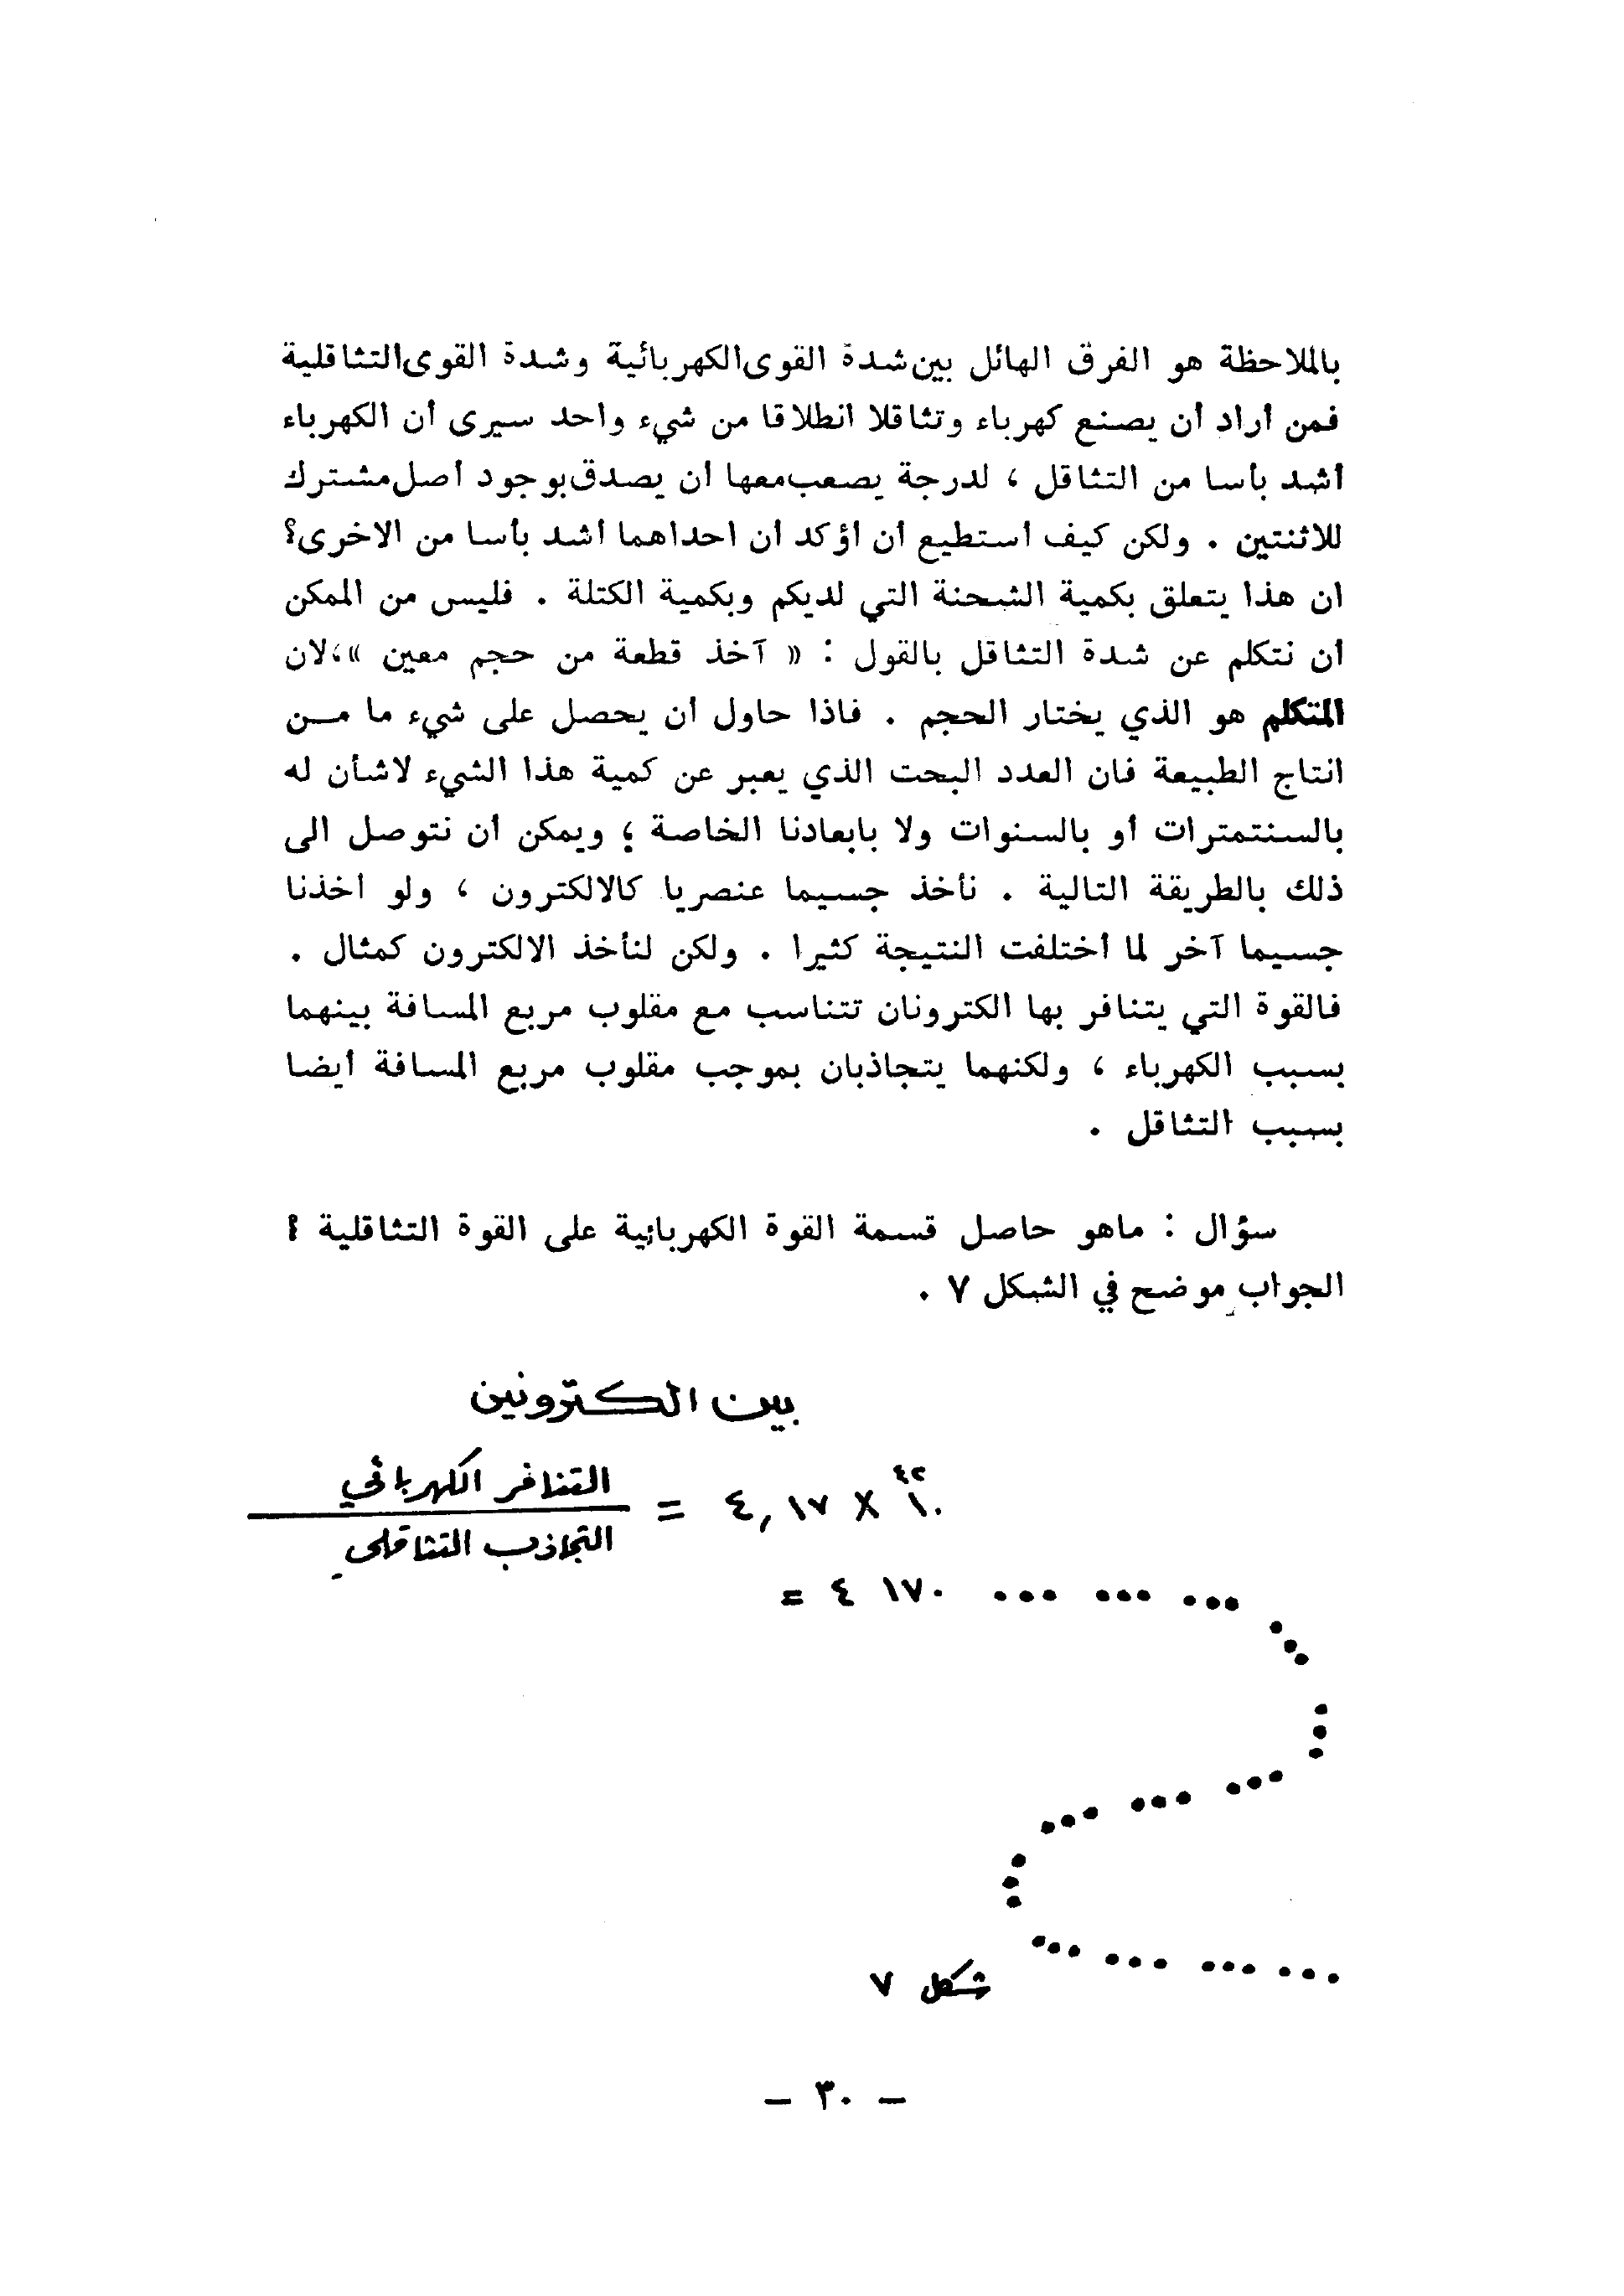 بالملاحظة هو الفرق الهائل بين شدة القوى الكهربائية وشدة القوى التثاقلية
فمن أراد أن يصنع كهرباء وتثاقلا انطلاقا من شيء واحد سيرى أن الكهرباء
أشد بأسا من التثاقل ، لدرجة يصعب معها أن يصدق بوجود أصل مشترك
للاثنتين . ولكن كيف أستطيع أن أؤكد أن احداهما أشد بأسا من الاخرى؟
ان هذا يتعلق بكمية الشحنة التي لديكم وبكمية الكتلة . فليس من الممكن
أن نتكلم عن شدة التثاقل بالقول : « آخذ قطعة من حجم معين »،لان
المتكلم هو الذي يختار الحجم . فاذا حاول أن يحصل على شيء ما مـــن
انتاج الطبيعة فان العدد البحت الذي يعبر عن كمية هذا الشيء لاشأن له
بالسنتمترات أو بالسنوات ولا بابعادنا الخاصة ؛ ويمكن أن نتوصل الى
ذلك بالطريقة التالية . نأخذ جسيما عنصريا كالالكترون ، ولو أخذنا
جسيما آخر لما أختلفت النتيجة كثيرا . ولكن لنأخذ الالكترون كمثال .
فالقوة التي يتنافر بها الكترونان تتناسب مع مقلوب مربع المسافة بينهما
بسبب الكهرباء ، ولكنهما يتجاذبان بموجب مقلوب مربع المسافة أيضا
بسبب التثاقل .
سؤال : ماهو حاصل قسمة القوة الكهربائية على القوة التثاقلية ؟
الجواب موضح في الشكل ٧ .
بين الكترونين
التنافر الكهربائي
التجاذب التثاقلي
= ٤,١٧ × ١٠^٤٢
= ٤ ١٧٠ ٠٠٠ ٠٠٠ ٠٠٠ ٠٠٠ ٠٠٠ ٠٠٠ ٠٠٠ ٠٠٠ ٠٠٠ ٠٠٠ ٠٠٠ ٠٠٠ ٠٠٠
شكل ٧
– ٣٠ –